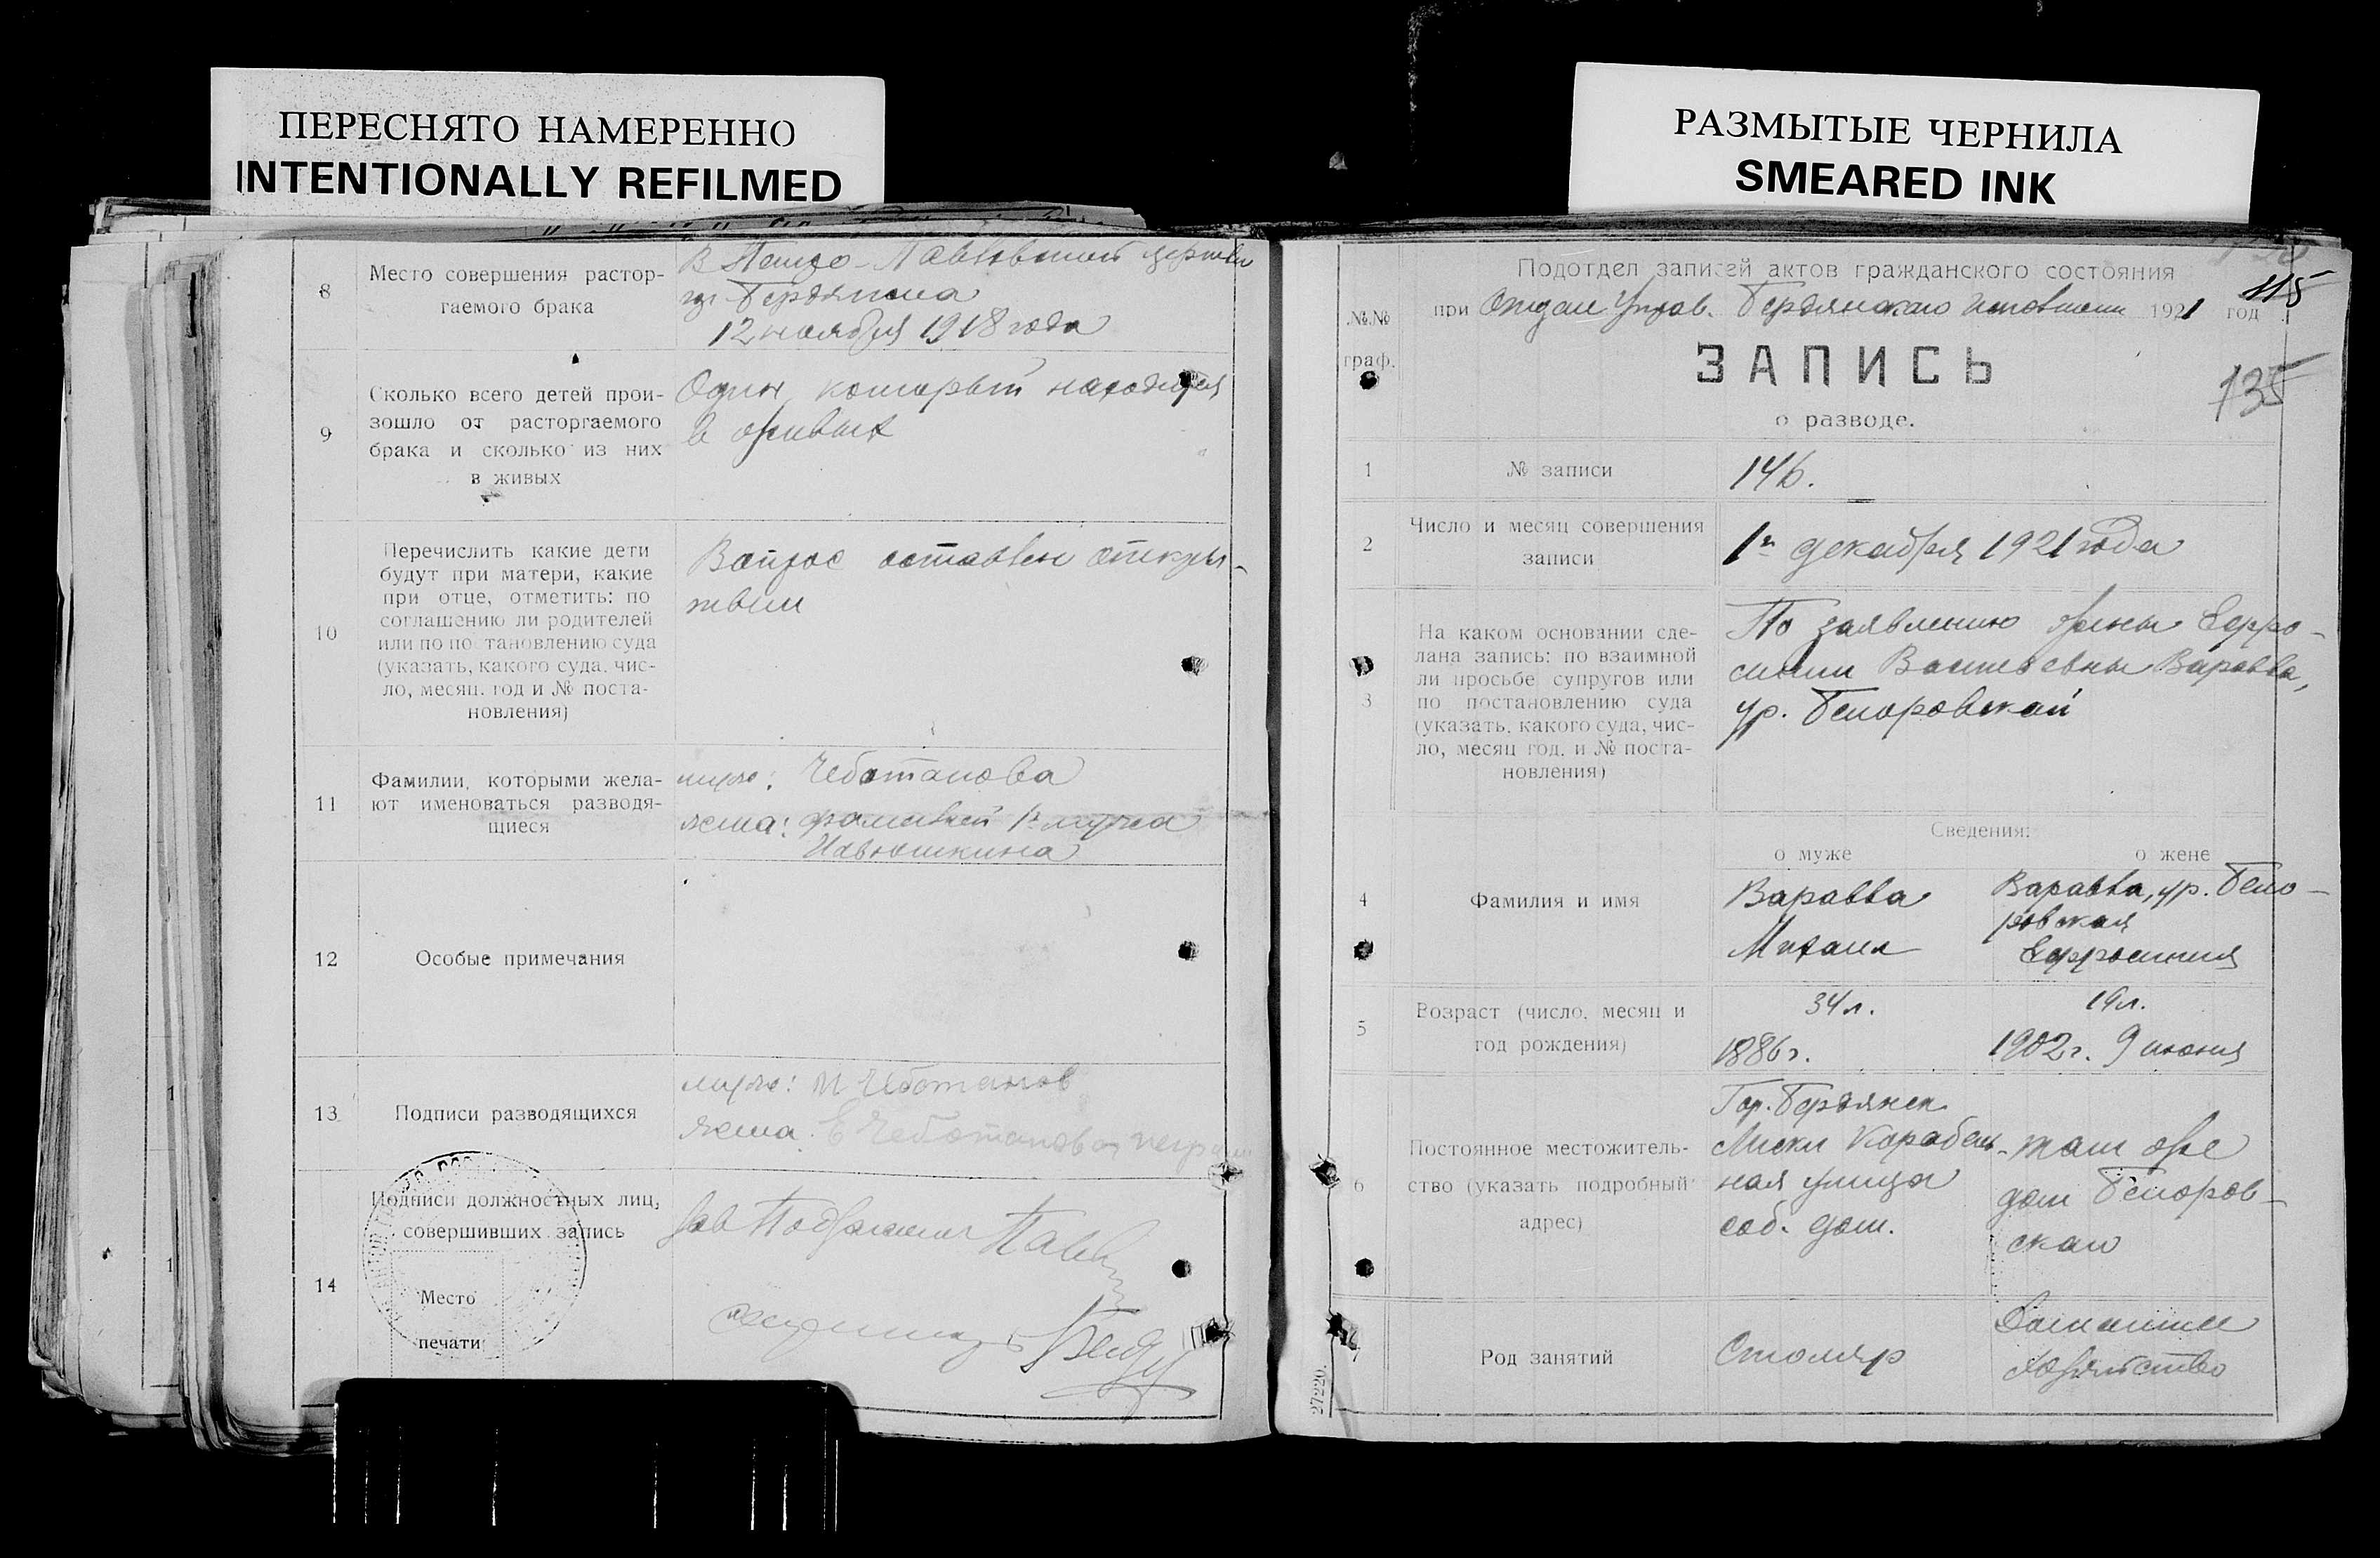 ПЕРЕСНЯТО НАМЕРЕННО
INTENTIONALLY REFILMED
РАЗМЫТЫЕ ЧЕРНИЛА
SMEARED INK
8
Место совершения растор-
гаемого брака
В Петро-Павловской церкви
гор. Бердянска
12 ноября 1918 года
9
Сколько всего детей прои-
зошло от расторгаемого
брака и сколько из них
в живых
Один, который находится
в живых
10
Перечислить какие дети
будут при матери, какие
при отце, отметить: по
соглашению ли родителей
или по по тановлению суда
(указать, какого суда, чис-
ло, месяц, год и № поста-
новления)
Вопрос оставлен откры-
тым
11
Фамилии, которыми жела-
ют именоваться разводя-
щиеся
муж: Чеботанова
жена: фамилией 1го мужа
12
Особые примечания
13
Подписи разводящихся
муж: И Чеботанов
жена: Е Чеботанова
14
Подписи должностных лиц,
совершивших запись
Место
печати
Зав Подотделом
115
Подотдел записей актов гражданского состояния
№№
граф.
при Отделе Управ. Бердянского Исповкома 1921 год
ЗАПИСЬ
135
о разводе.
1
№ записи
146.
2
Число и месяц совершения
записи
1го декабря 1921 года
3
На каком основании сде-
лана запись: по взаимной
ли просьбе супругов или
по постановлению суда
(указать, какого суда, чис-
ло, месяц год, и № поста-
новления)
По заявлению жены Ефро-
синии Варавва,
ур. Белоровской
Сведения:
о муже
о жене
4
Фамилия и имя
Варавва
Михаил
Варавва, ур. Бело-
ровская
Ефросиния
5
Возраст (число, месяц и
год рождения)
34 л.
1886 г.
19 л.
1902 г. 9 июня
6
Постоянное местожитель-
ство (указать подробный
адрес)
Гор. Бердянск
Лиски Карабель-
ная улица
соб. дом.
там же
дом Белоров-
ской
7
Род занятий
Столяр
Домашнее
хозяйство
27220.